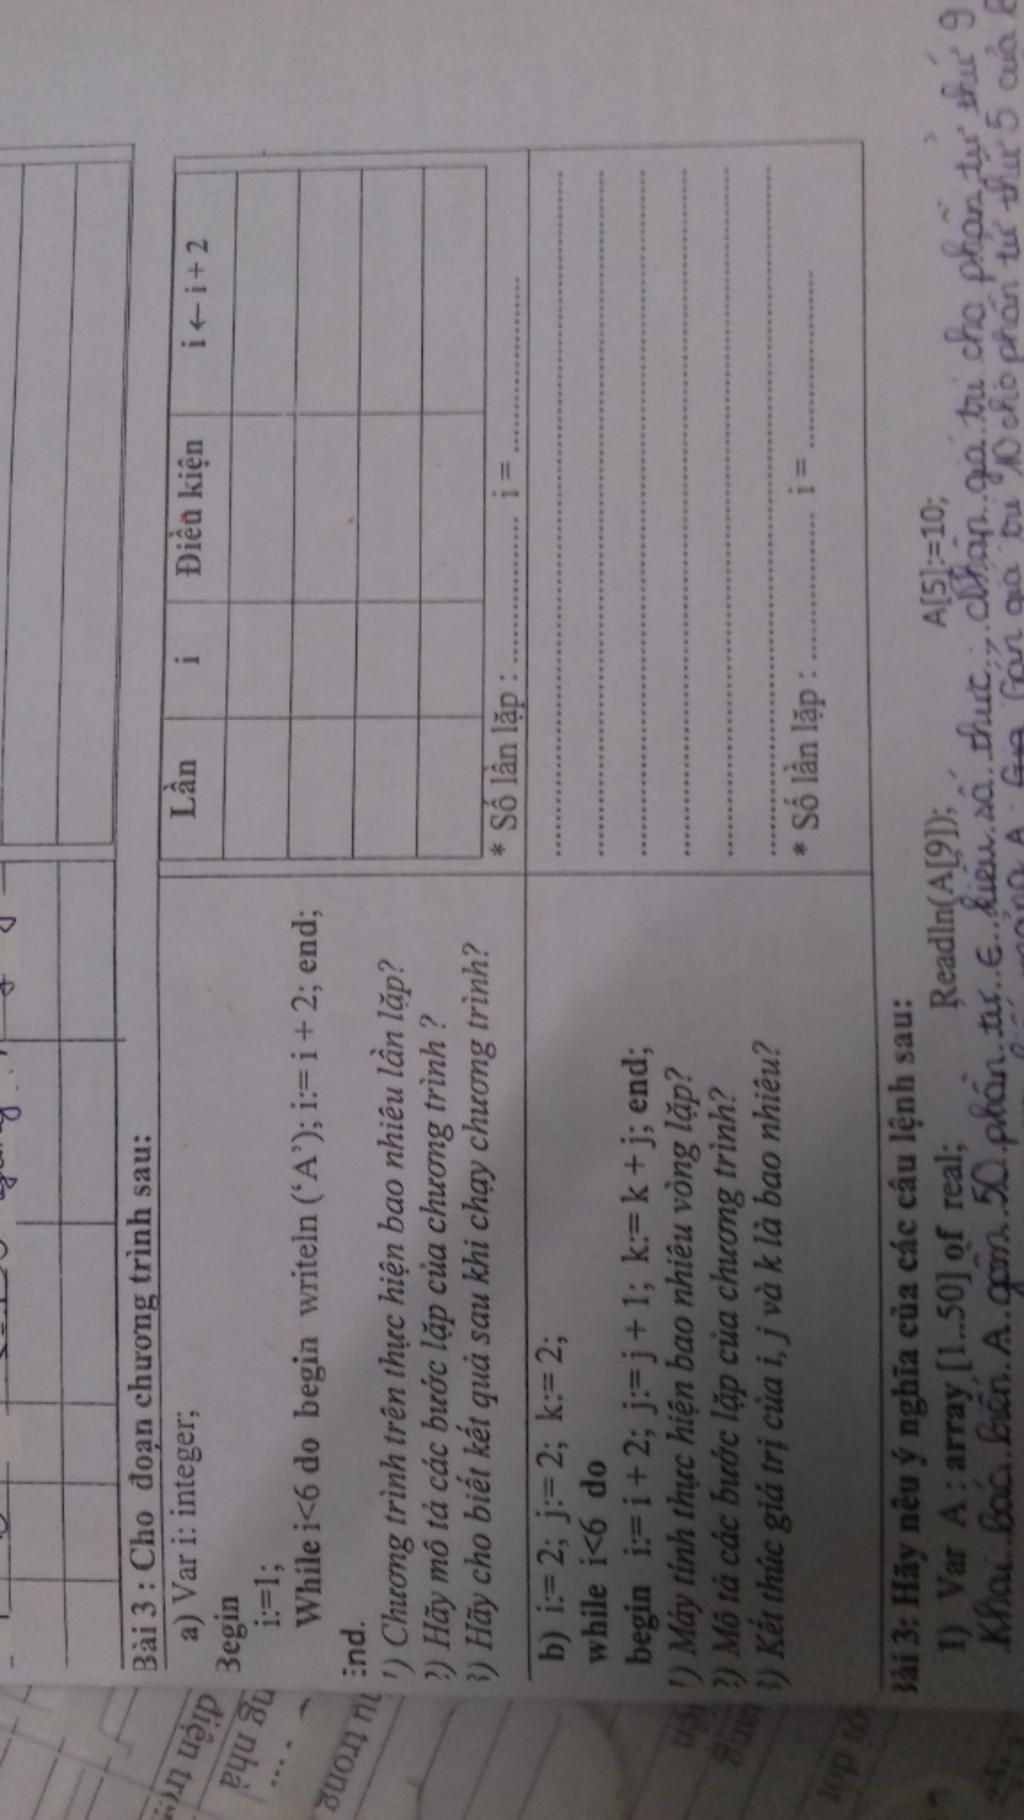 Bài 3 : Cho đoạn chương trình sau:
a) Var i: integer;
Begin
i:=1;
While i<6 do begin writeln ('A'); i:= i + 2; end;
End.
1) Chương trình trên thực hiện bao nhiêu lần lặp?
2) Hãy mô tả các bước lặp của chương trình ?
3) Hãy cho biết kết quả sau khi chạy chương trình?
Lần i Điều kiện i ← i + 2
* Số lần lặp : .................... i = ....................
b) i:= 2; j:= 2; k:= 2;
while i<6 do
begin i:= i + 2; j:= j + 1; k:= k + j; end;
1) Máy tính thực hiện bao nhiêu vòng lặp?
2) Mô tả các bước lặp của chương trình?
3) Kết thúc giá trị của i, j và k là bao nhiêu?
* Số lần lặp : .................... i = ....................
Bài 3: Hãy nêu ý nghĩa của các câu lệnh sau:
1) Var A : array [1..50] of real; Readln(A[9]); A[5]:=10;
Khai báo biến A gồm 50 phần tử kiểu số thực, nhập giá trị cho phần tử thứ 9
Gán giá trị 10 cho phần tử thứ 5 của